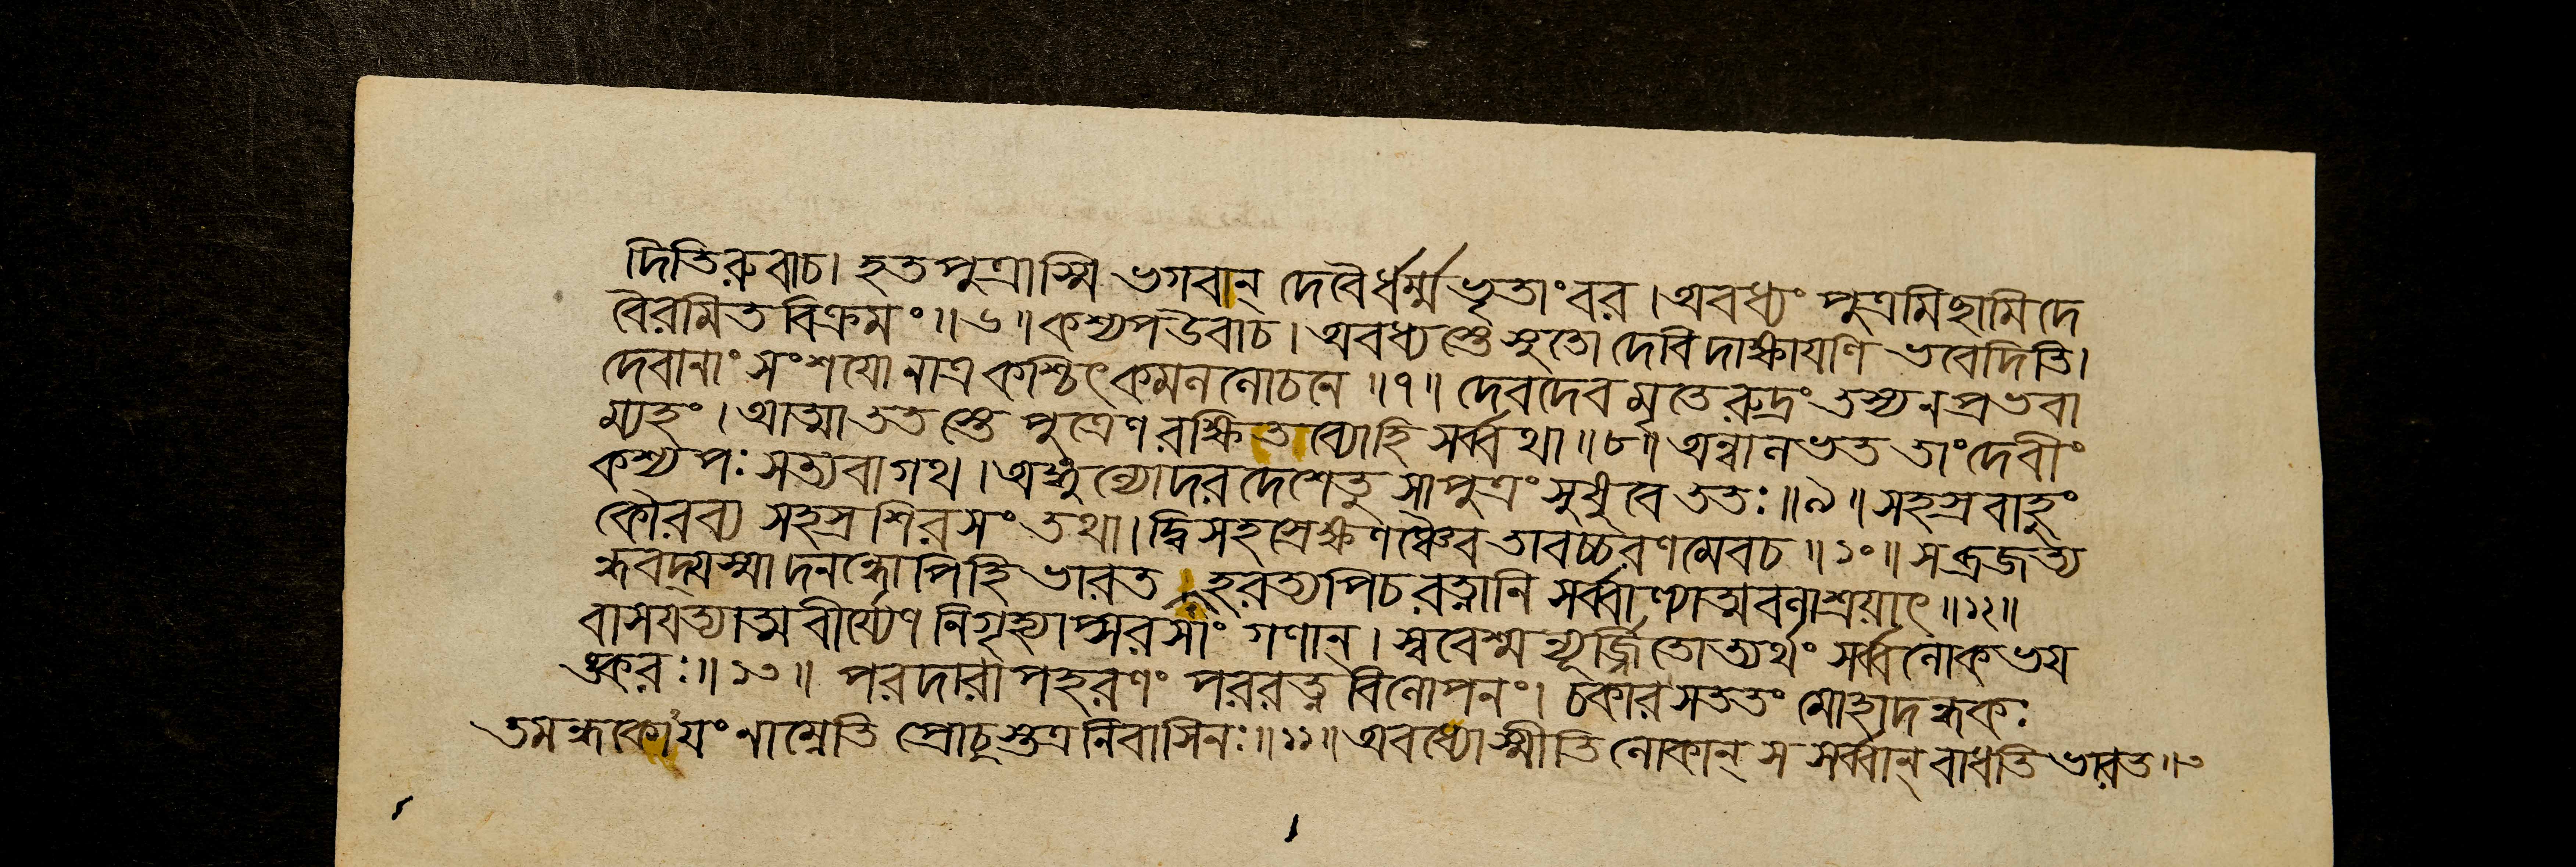 দিতিরুবাচ। হতপুত্রাস্মি ভগবান্ দেবৈর্ধর্ম্মভৃতাংবর। অবধ্যং পুত্রমিছামিদে
বৈরমিতবিক্রমং॥৬॥ কশ্যপউবাচ। অবধ্যস্তে সুতো দেবি দাক্ষায়ণি ভবেদিতি।
দেবানাং সংশযোনাত্র কশ্চিৎকমললোচনে॥৭॥ দেবদেবমৃতেরুদ্রং তস্যনপ্রভবা
ম্যহং। আত্মাততস্তে পুত্রেণ রক্ষিতব্যোহি সর্ব্বথা॥৮॥ অন্বালভততাংদেবীং
কশ্যপঃ সত্যবাগথ। অঙ্গুল্যোদরদেশেতু সাপুত্রং সুষুবে ততঃ॥৯॥ সহস্রবাহুং
কৌরব্য সহস্রশিরসং তথা। দ্বিসহস্রেক্ষণঞ্চৈব তাবচ্চরণমেবচ॥১০॥ সব্রজত্য
ন্ধবদ্যস্মাদনন্ধোপিহি ভারত হরত্যপিচরত্নানি সর্ব্বাণ্যাত্মবলাশ্রয়াৎ॥১২॥
বাসযত্যাত্মবীর্য্যেণ নিগৃহ্যাপ্সরসাং গণান্। স্ববেশ্মন্যূর্জ্জিতোত্যর্থং সর্ব্বলোকভয
ঙ্করঃ॥১৩॥ পরদারাপহরণং পররত্নবিলোপনং। চকারসততং মোহাদন্ধকঃ
তমন্ধকোয়ং নাম্নেতি প্রোচুস্তত্রনিবাসিনঃ॥১১॥ অবধ্যোস্মীতি লোকান্ স সর্ব্বান্ বাধতি ভারত॥